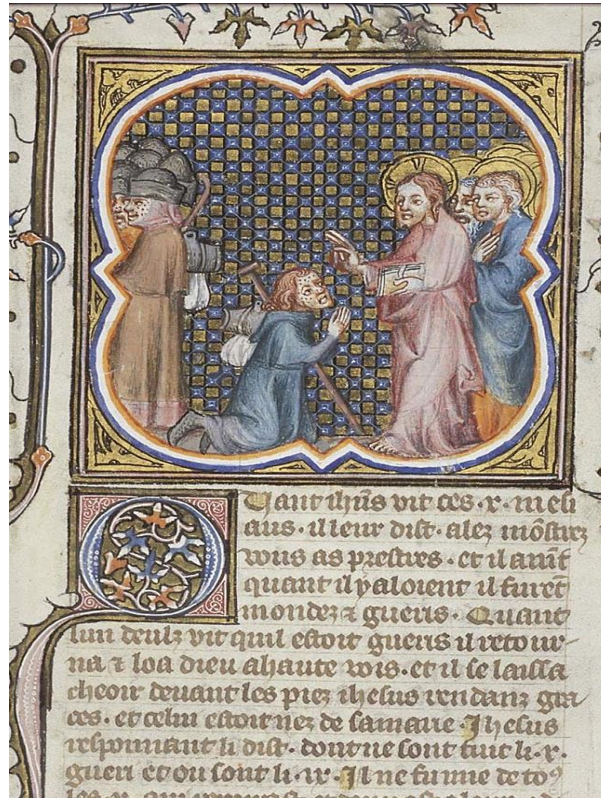 Quant ihũs vit ces .x. meli
aus. il leur dist. alez mõstrez
vous as prestres. et il avĩt
quant il y aloient il furẽt
mondez ⁊ gueris. Quant
lun deulz vit quil estoit gueris il retour
na ⁊ loa dieu a haute vois. et il se laissa
cheoir devant les piez ihesus rendanz gra
ces. et celui estoit nez de samarie Ihesus
respounant li dist. dont ne sont tuit li .x.
gueri et ou sont li .ix. Il ne fu nie de toꝰ